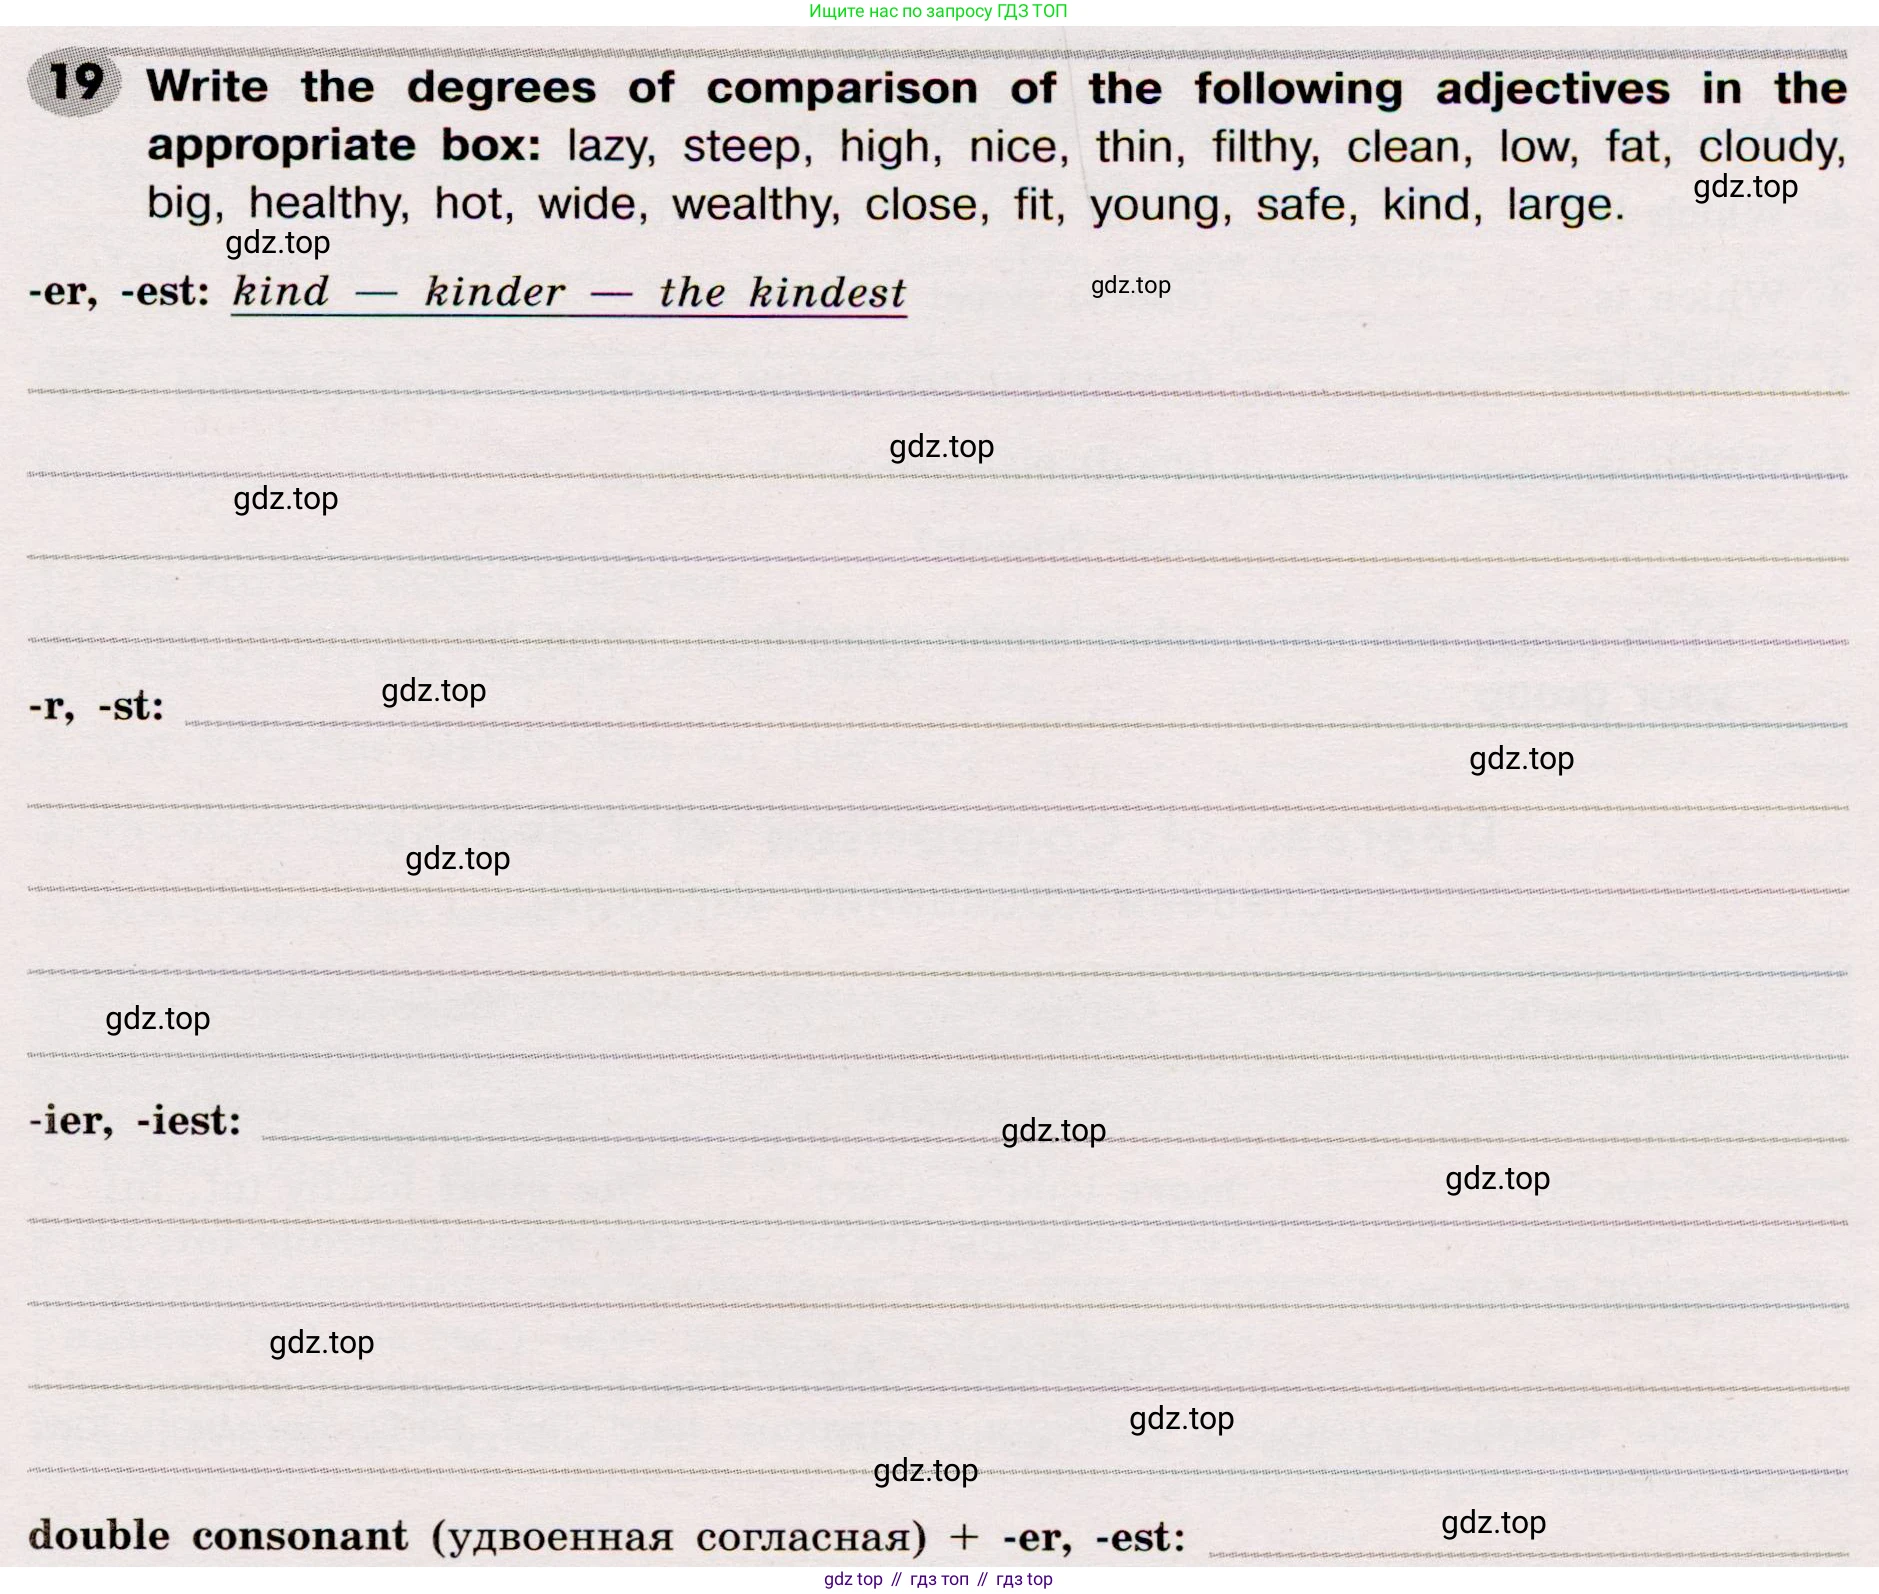 Ищите нас по запросу ГДЗ ТОП
19 Write the degrees of comparison of the following adjectives in the
appropriate box: lazy, steep, high, nice, thin, filthy, clean, low, fat, cloudy,
gdz.top
big, healthy, hot, wide, wealthy, close, fit, young, safe, kind, large.
gdz.top
gdz.top
-er, -est: kind — kinder — the kindest
gdz.top
gdz.top
gdz.top
-r, -st:
gdz.top
gdz.top
gdz.top
-ier, -iest:
gdz.top
gdz.top
gdz.top
gdz.top
gdz.top
gdz.top
double consonant (удвоенная согласная) + -er, -est:
gdz top // гдз топ // гдз top